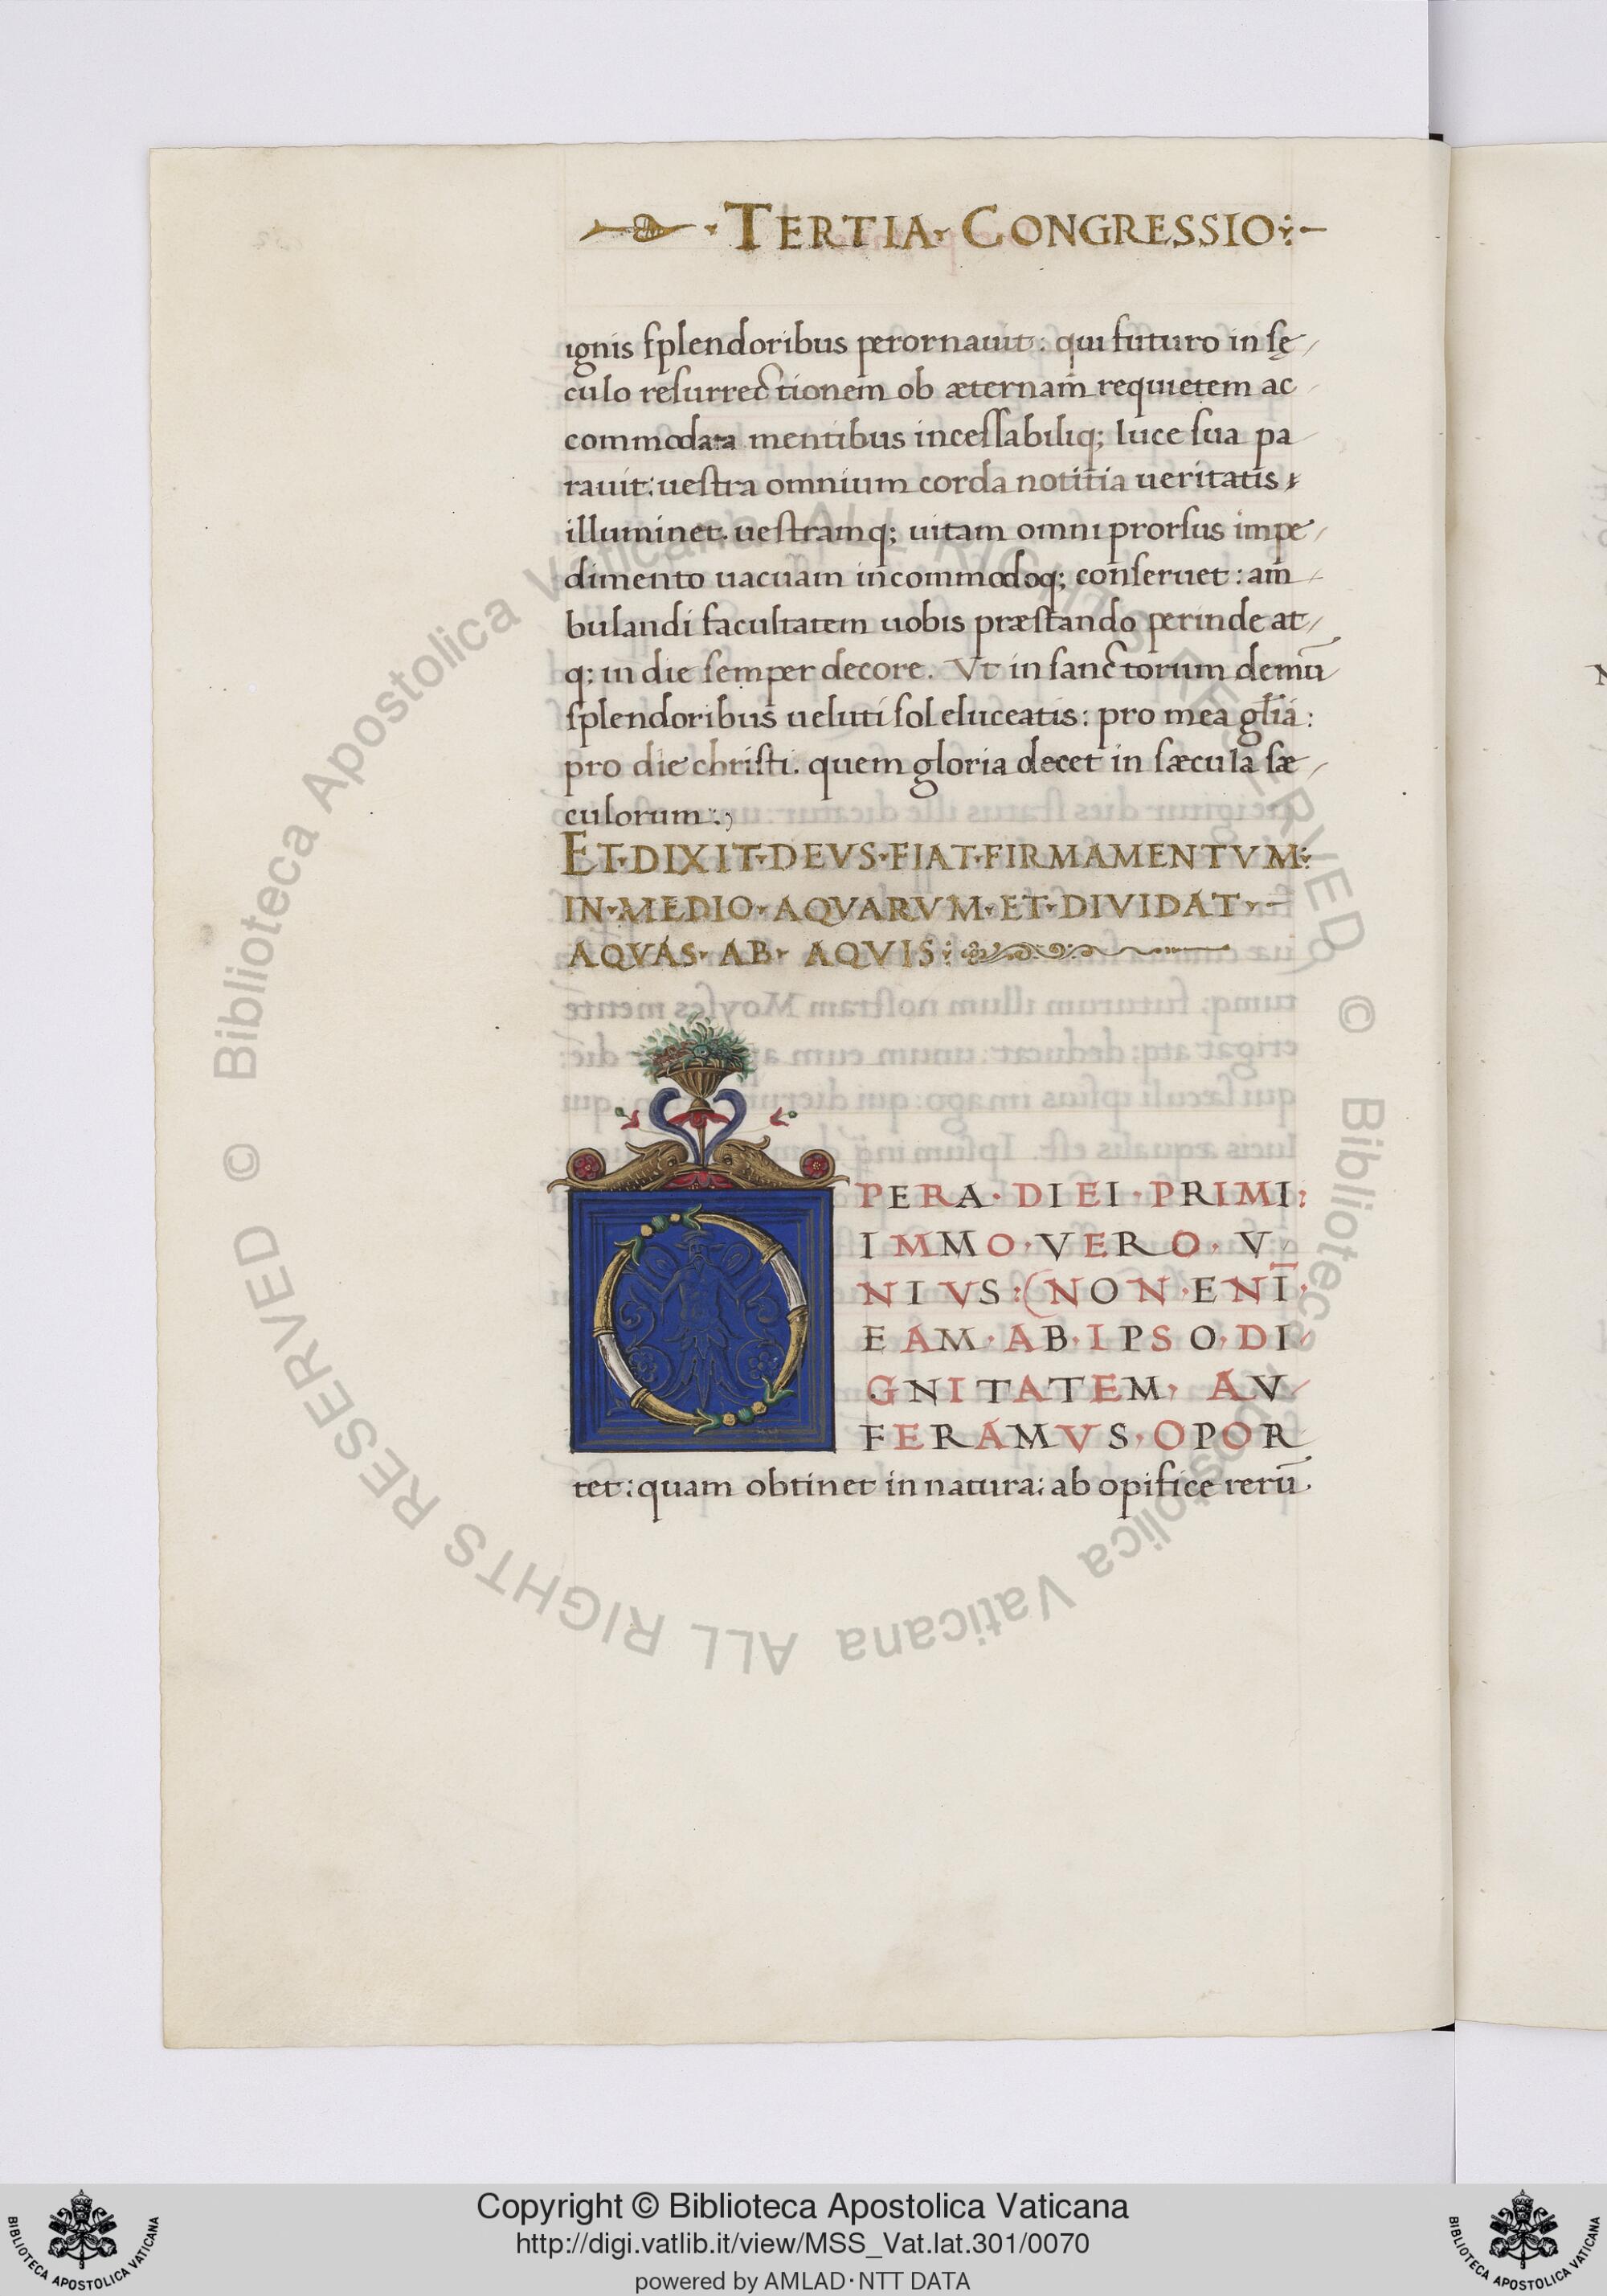 TERTIA CONGRESSIO:-
ignis ſplendoribus perornauit: qui futuro in ſę
culo reſurrectionem ob æternam requietem ac
commodata mentibus inceſſabiliq; luce ſua pa
rauit: ueſtra omnium corda notitia ueritatis
illuminet. ueſtramq; uitam omni prorſus impe
dimento uacuam incommodoq; conſeruet: am
bulandi facultatem uobis præſtando perinde at
q; in die ſemper decore. Vt in ſanctorum demū
ſplendoribus ueluti ſol eluceatis: pro mea gl̄ia:
pro die chriſti. quem gloria decet in ſæcula ſæ
culorum.,
ET·DIXIT·DEVS·FIAT·FIRMAMENTVM:
IN·MEDIO·AQVARVM·ET·DIVIDAT·-
AQVAS·AB·AQVIS:
OPERA·DIEI·PRIMI:
IMMO·VERO·V
NIVS:(NON·ENĪ·
EAM·AB·IPSO·DI
GNITATEM, AV
FERAMVS·OPOR
tet: quam obtinet in natura: ab opifice rerū.
© Biblioteca Apostolica Vaticana ALL RIGHTS RESERVED © Biblioteca Apostolica Vaticana ALL RIGHTS RESERVED
Copyright © Biblioteca Apostolica Vaticana
http://digi.vatlib.it/view/MSS_Vat.lat.301/0070
powered by AMLAD·NTT DATA
BIBLIOTECA APOSTOLICA VATICANA
BIBLIOTECA APOSTOLICA VATICANA